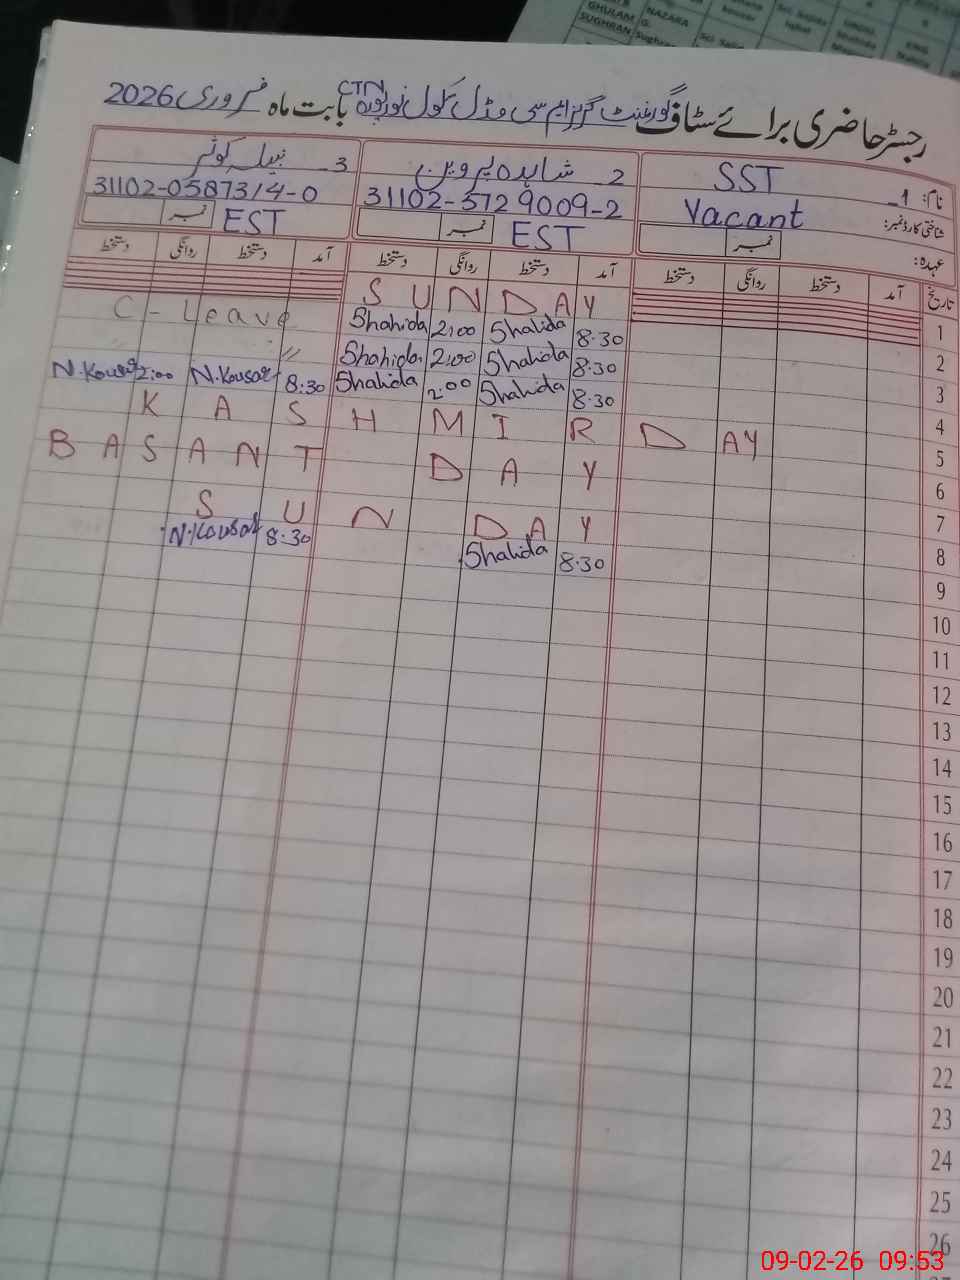 GHULAM NAZARA
SUGHRAN G.
رجسٹر حاضری برائے سٹاف گورنمنٹ گرلز ایم سی مڈل سکول نور پورہ CTN بابت ماہ فروری 2026
نام: 1- SST
2- شاہدہ پروین
3- نبیلہ کوثر
شناختی کارڈ نمبر: Vacant
31102-5729009-2
31102-0587314-0
عہدہ: نمبر
نمبر EST
نمبر EST
تاریخ آمد دستخط روانگی دستخط آمد دستخط روانگی دستخط آمد دستخط روانگی دستخط
1 SUNDAY
2 8.30 Shahida 2:00 Shahida C-Leave
3 8.30 Shahida 2:00 Shahida "
4 8.30 Shahida 2:00 Shahida 8:30 N.Kousar 2:00 N.Kousar
5 KASHMIR DAY
6 BASANT DAY
7 SUNDAY
8 8.30 Shahida 8:30 N.Kousar
9
10
11
12
13
14
15
16
17
18
19
20
21
22
23
24
25
26
09-02-26 09:53